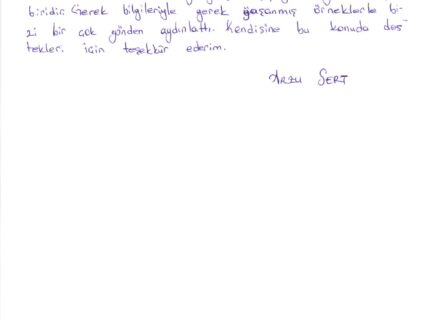 biridir. Gerek bilgileriyle gerek yaşanmış örneklerle bi-
zi bir çok yönden aydınlattı. Kendisine bu konuda des
tekleri için teşekkür ederim.
Arzu SERT